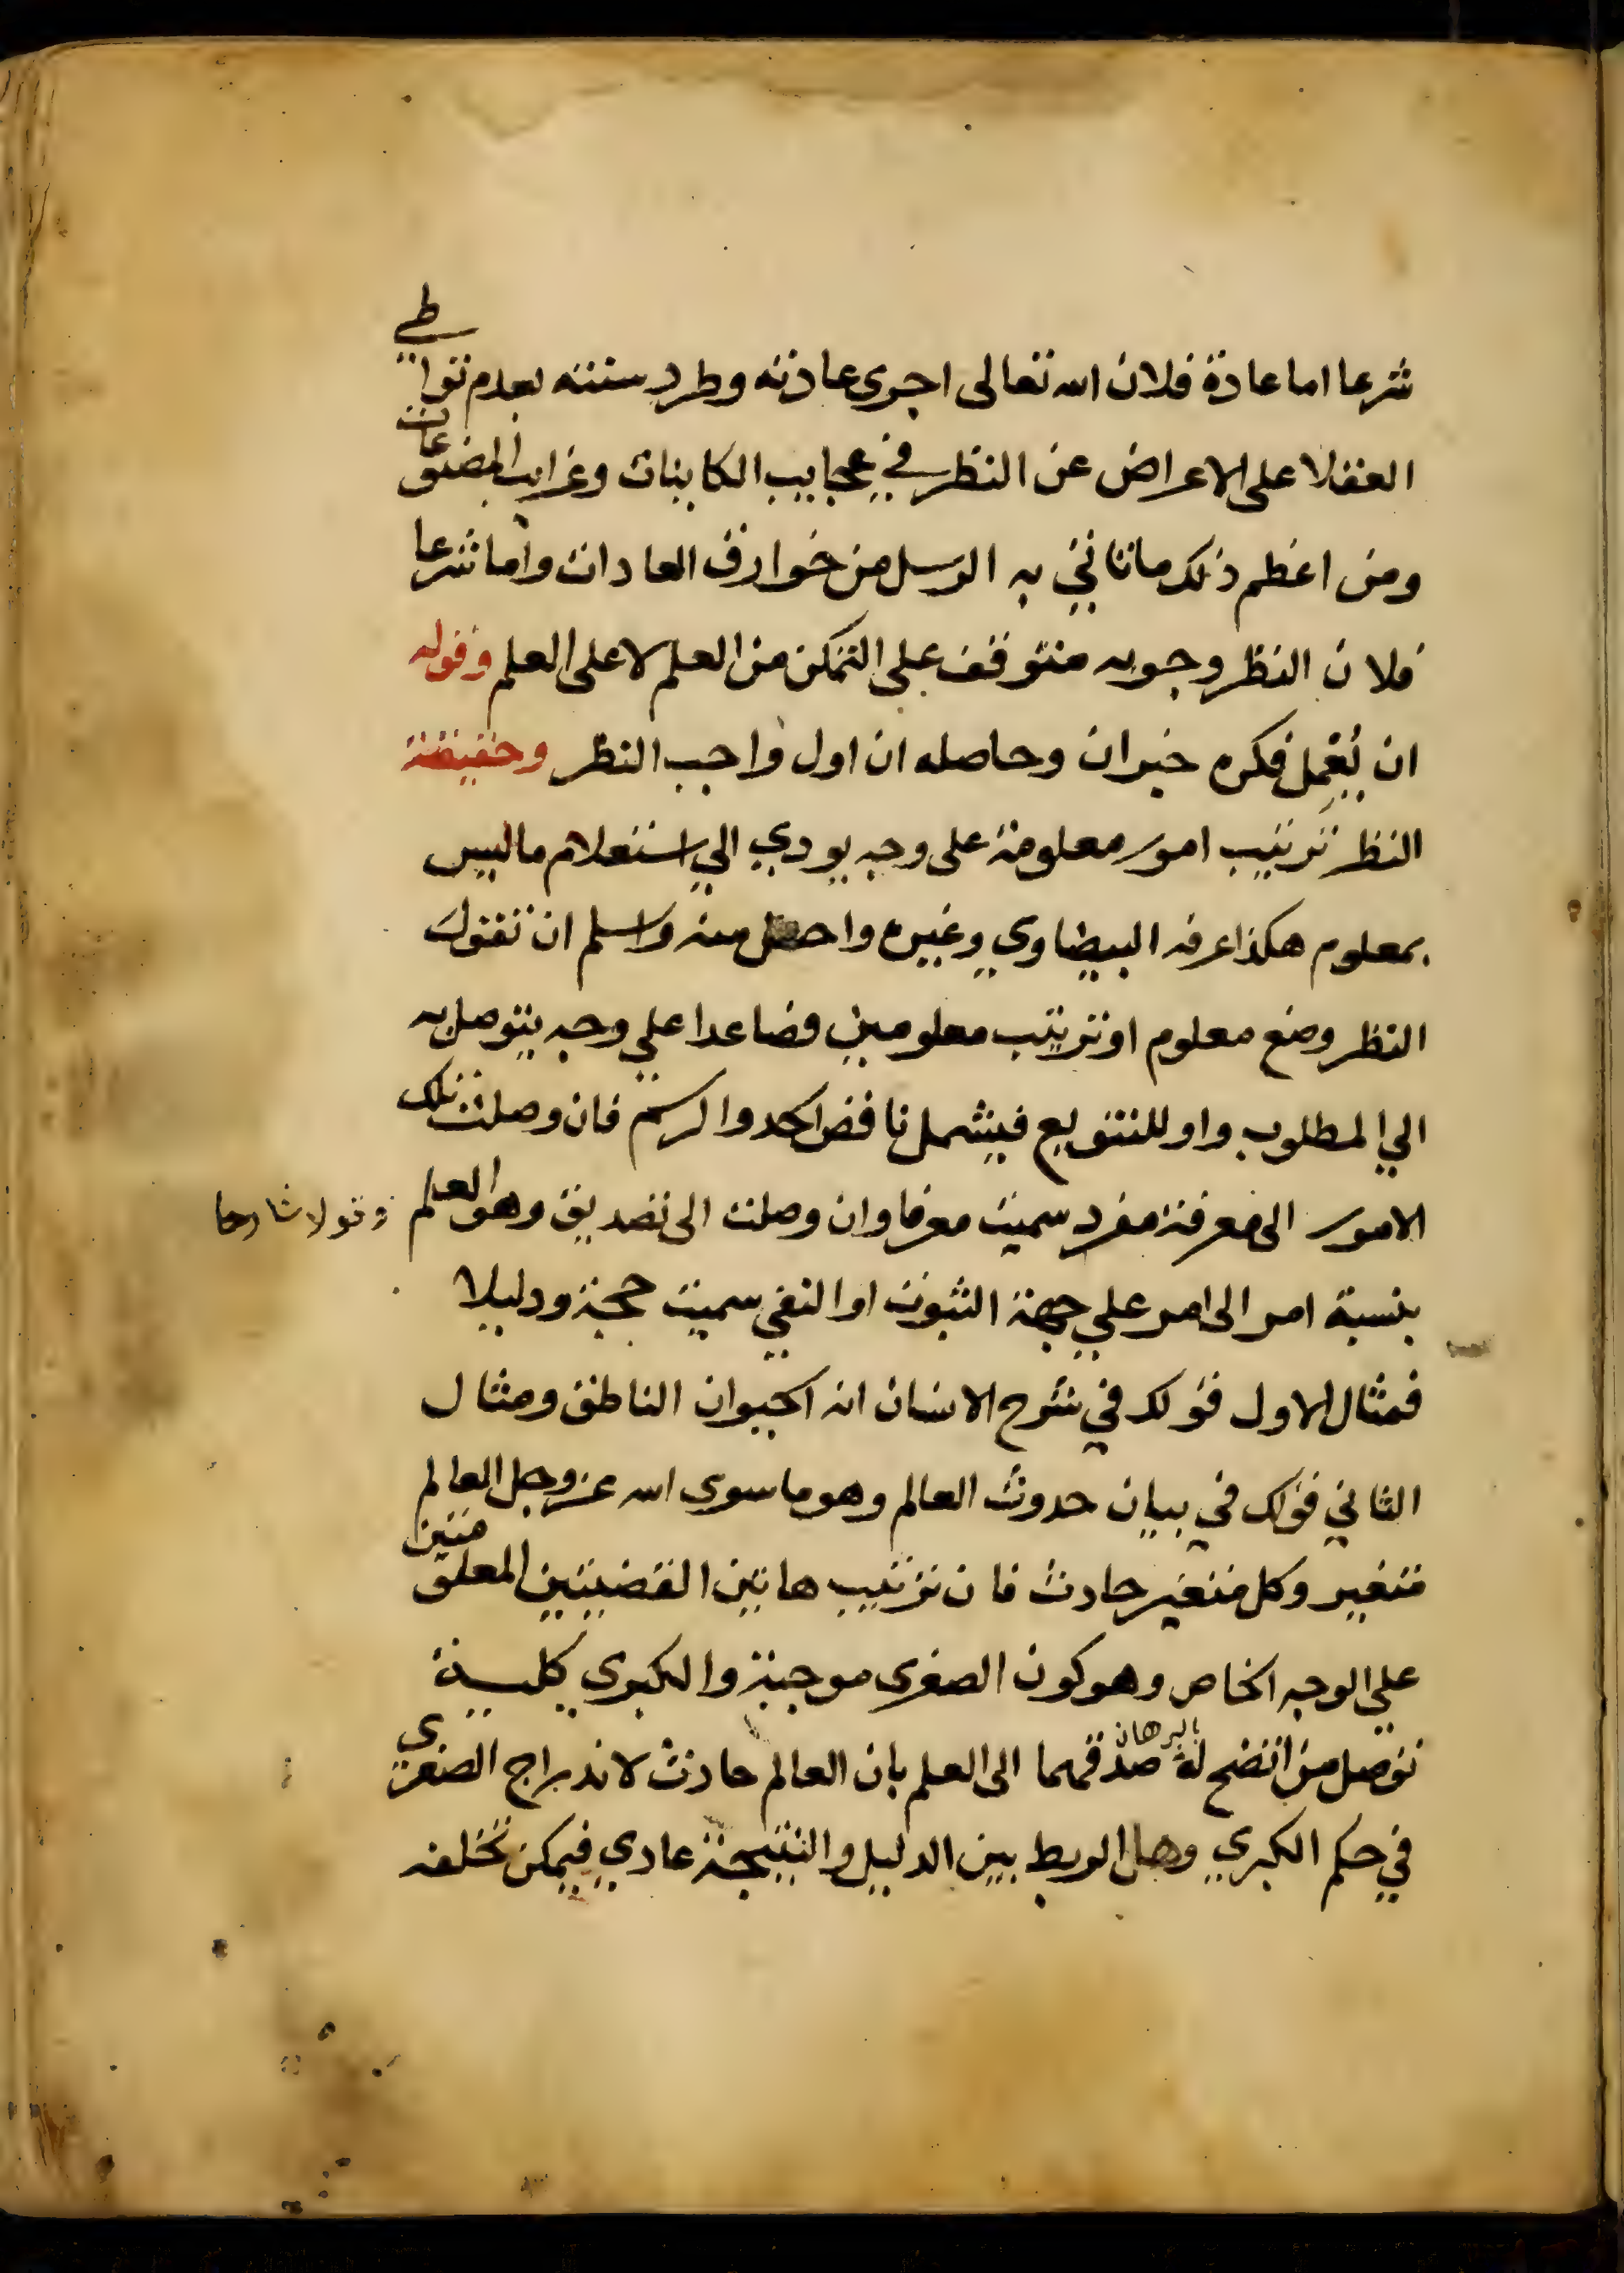 شرعا اما عادة فلان الله تعالى اجرى عادته وطرد سنته بعدم تواطي
العقلا على الاعراض عن النظر في عجايب الكاينات وغرايب المصنوعات
ومن اعظم ذلك ما تاتي به الرسل من خوارق العادات واما شرعا
فلان النظر وجوبه متوقف على التمكن من العلم لا على العلم وقوله
ان يُعْمِل فكره خبر ان وحاصله ان اول واجب النظر وحقيقة
النظر ترتيب امور معلومة على وجه يودي الي استعلام ما ليس
بمعلوم هكذا عرفه البيضاوي وغيره واحصل منه واسلم ان تقول
النظر وضع معلوم او ترتيب معلومين فصاعدا علي وجه يتوصل به
الي المطلوب واو للتنويع فيشمل ناقص الحد والرسم فان وصلت تلك
الامور الى معرفة مفرد سميت معرفا وان وصلت الى تصديق وهو العلم
وقولا شارحا
بنسبة امر الى امر علي جهة الثبوت او النفي سميت حجة ودليلا
فمثال الاول قولك في شرح الانسان انه الحيوان الناطق ومثال
الثاني قولك في بيان حدوث العالم وهو ما سوى الله عز وجل العالم
متغير وكل متغير حادث فان ترتيب هاتين القضيتين المعلومتين
علي الوجه الخاص وهو كون الصغرى موجبة والكبرى كلية
توصل من اتضح له بالبرهان صدقهما الى العلم بان العالم حادث لاندراج الصغرى
في حكم الكبري وهل الربط بين الدليل والنتيجة عادي فيمكن تخلفه